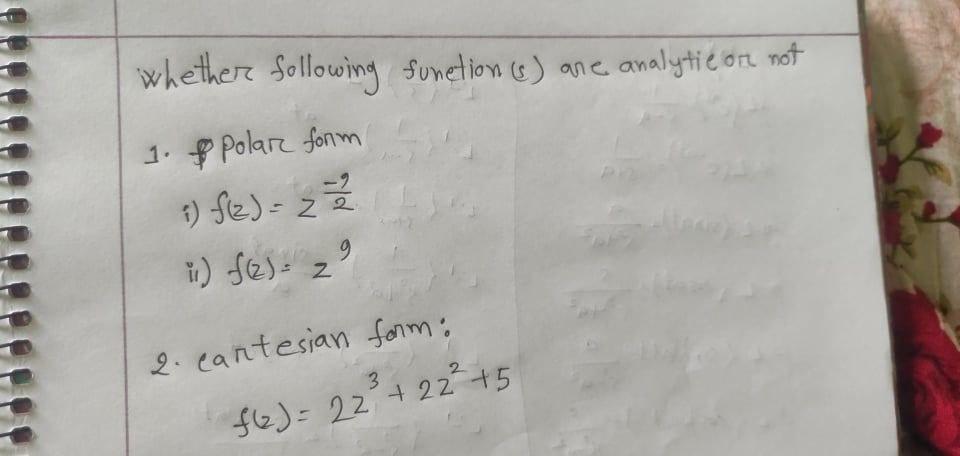 Whether following function(s) are analytic or not
1. Polar form
i) f(z) = z^{-9/2}
ii) f(z) = z^9
2. cartesian form:
f(z) = 2z^3 + 2z^2 + 5